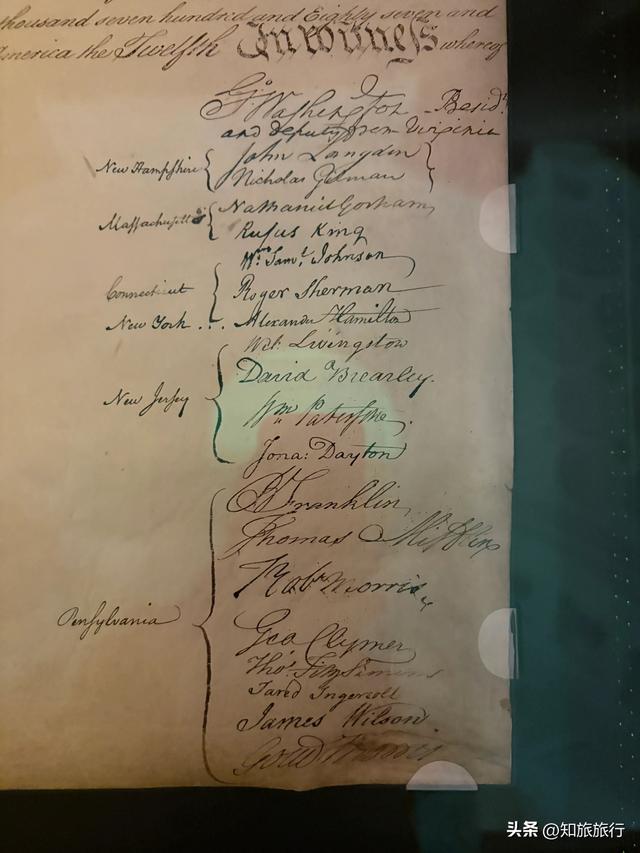 thousand seven hundred and Eighty seven and
America the Twelfth In witness whereof
Go: Washington - Presid.t
and deputy from Virginia
New Hampshire { John Langdon }
Nicholas Gilman
Massachusetts { Nathaniel Gorham
Rufus King
Connecticut { Wm: Saml. Johnson
Roger Sherman
New York . . . Alexander Hamilton
New Jersey { Wil: Livingston
David Brearley.
Wm Paterson.
Jona: Dayton
Pensylvania { B Franklin
Thomas Mifflin
Robt Morris
Geo Clymer
Thos. FitzSimons
Jared Ingersoll
James Wilson
Gouv Morris
头条 @知旅旅行